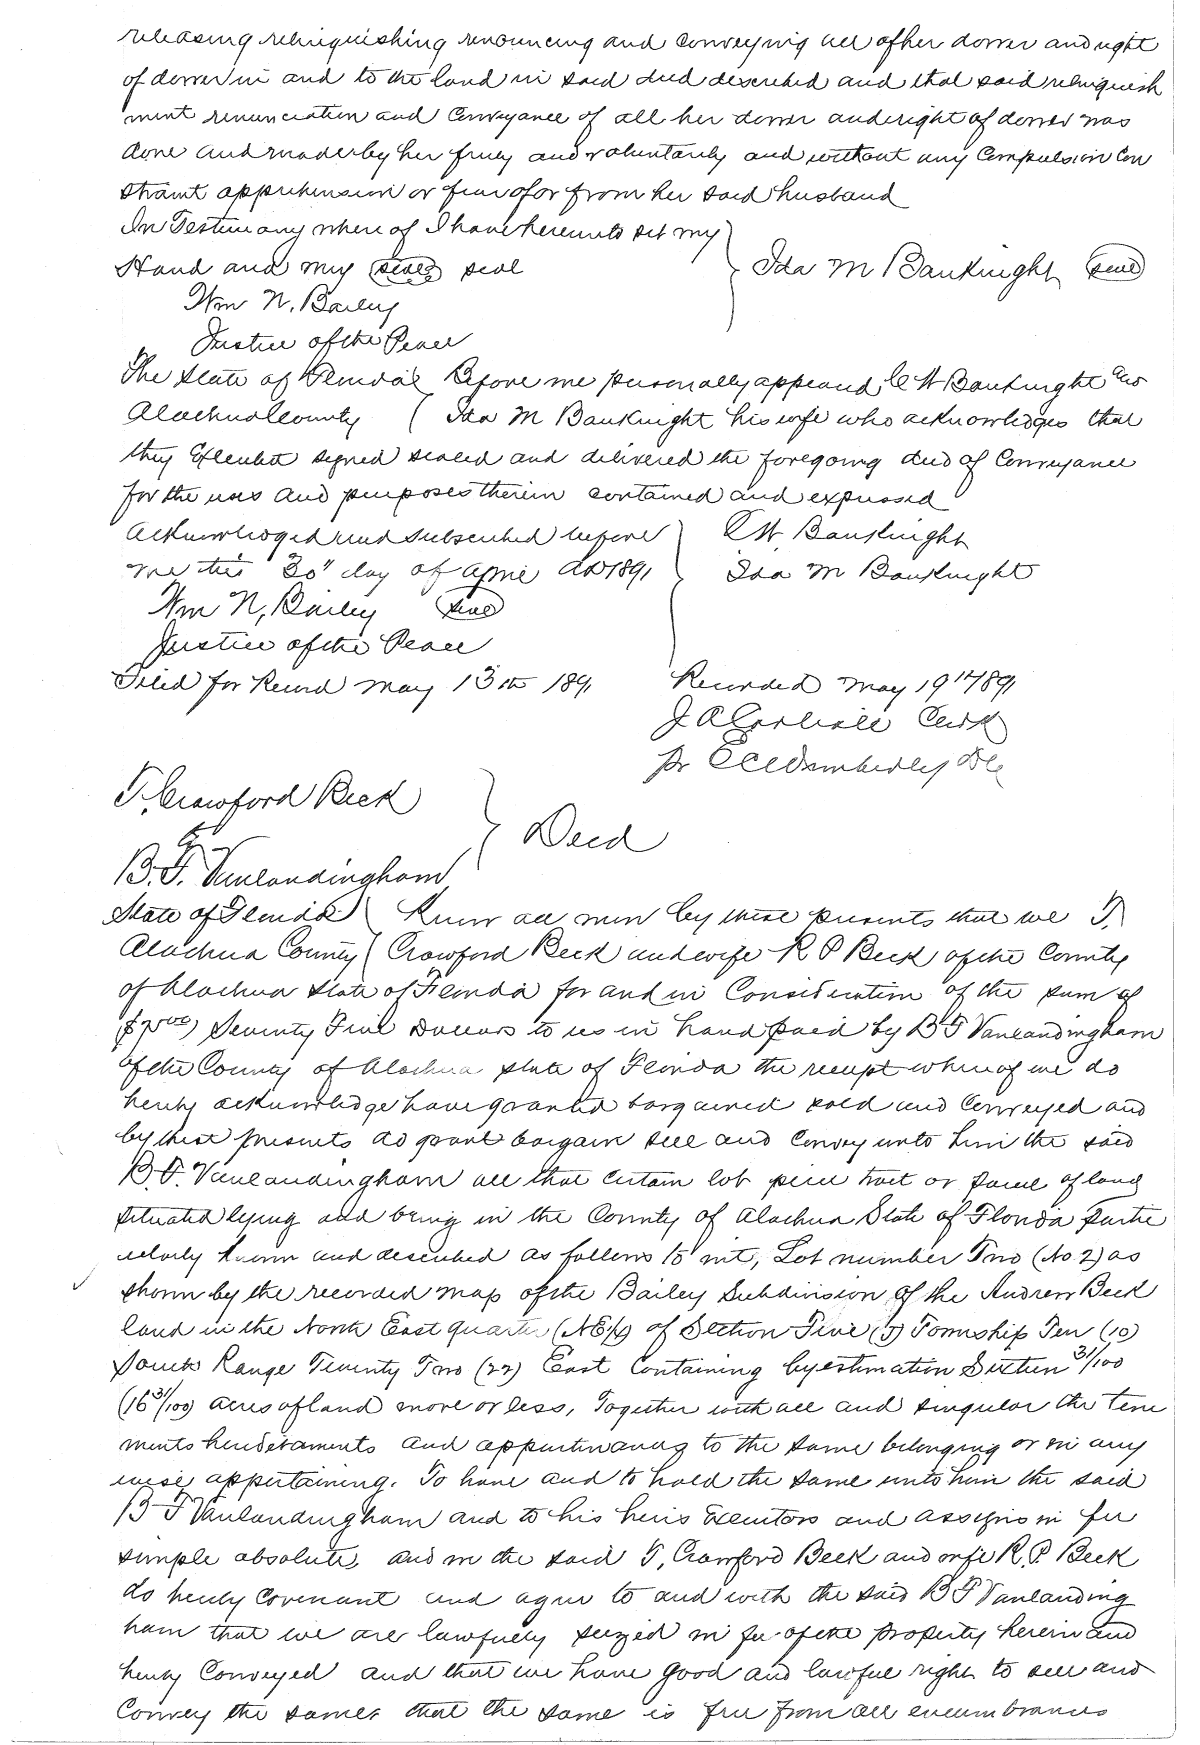 releasing relinquishing renouncing and conveying all of her dower and right
of dower in and to the land in said deed described and that said relinquish
ment renunciation and conveyance of all her dower and right of dower was
done and made by her freely and voluntarily and without any Compulsion Con
straint apprehension or fear of or from her said husband
In Testimony where of I have hereunto set my
Hand and my seal seal
Ida M Bauknight seal
Wm N. Bailey
Justice of the Peace
The State of Florida Before me personally appeard C W Bauknight and
Alachua County Ida M Bauknight his wife who acknowledges that
they Executed signed sealed and delivered the foregoing deed of Conveyance
for the uses and purposes therein contained and expressed
Acknowledged and Subscribed before
me this 30" day of April AD 1891
C W. Bauknight
Ida M Bauknight
Wm N, Bailey seal
Justice of the Peace
Filed for Record May 13th 1891
Recorded May 19" 1891
J A Carlisle Clerk
pr Wimberley DC
T. Crawford Beck
to
B. F. Vanlandingham
Deed
State of Florida Know all men by these presents that we T.
Alachua County Crawford Beck and wife R P Beck of the County
of Alachua State of Florida for and in Consideration of the sum of
Seventy Five Dollars to us in hand paid by B F Vanlandingham
of the County of Alachua State of Florida the receipt where of we do
hereby acknowledge have granted bargained sold and Conveyed and
by these presents do grant bargain sell and Convey unto him the said
B. F. Vanlandingham all that certain lot piece tract or parcel of land
situated lying and being in the County of Alachua State of Florida partic
ularly known and described as follows to wit, Lot number Two (No 2) as
shown by the recorded map of the Bailey Subdivision of the Andrew Beck
land in the North East quarter (NE¼) of Section Five (5) Township Ten (10)
South Range Twenty Two (22) East Containing by estimation Sixteen 31/100
(16 31/100) acres of land more or less, Together with all and singular the tene
ments hereditaments and appurtenances to the same belonging or in any
wise appertaining. To have and to hold the same unto him the said
B F Vanlandingham and to his heirs Executors and assigns in fee
simple absolute, and we the said T, Crawford Beck and wife R. P. Beck
do hereby Covenant and agree to and with the said B F Vanlanding
ham that we are lawfully seized in fee of the property herein and
hereby Conveyed and that we have good and lawful right to sell and
Convey the same, that the same is free from all encumbrances